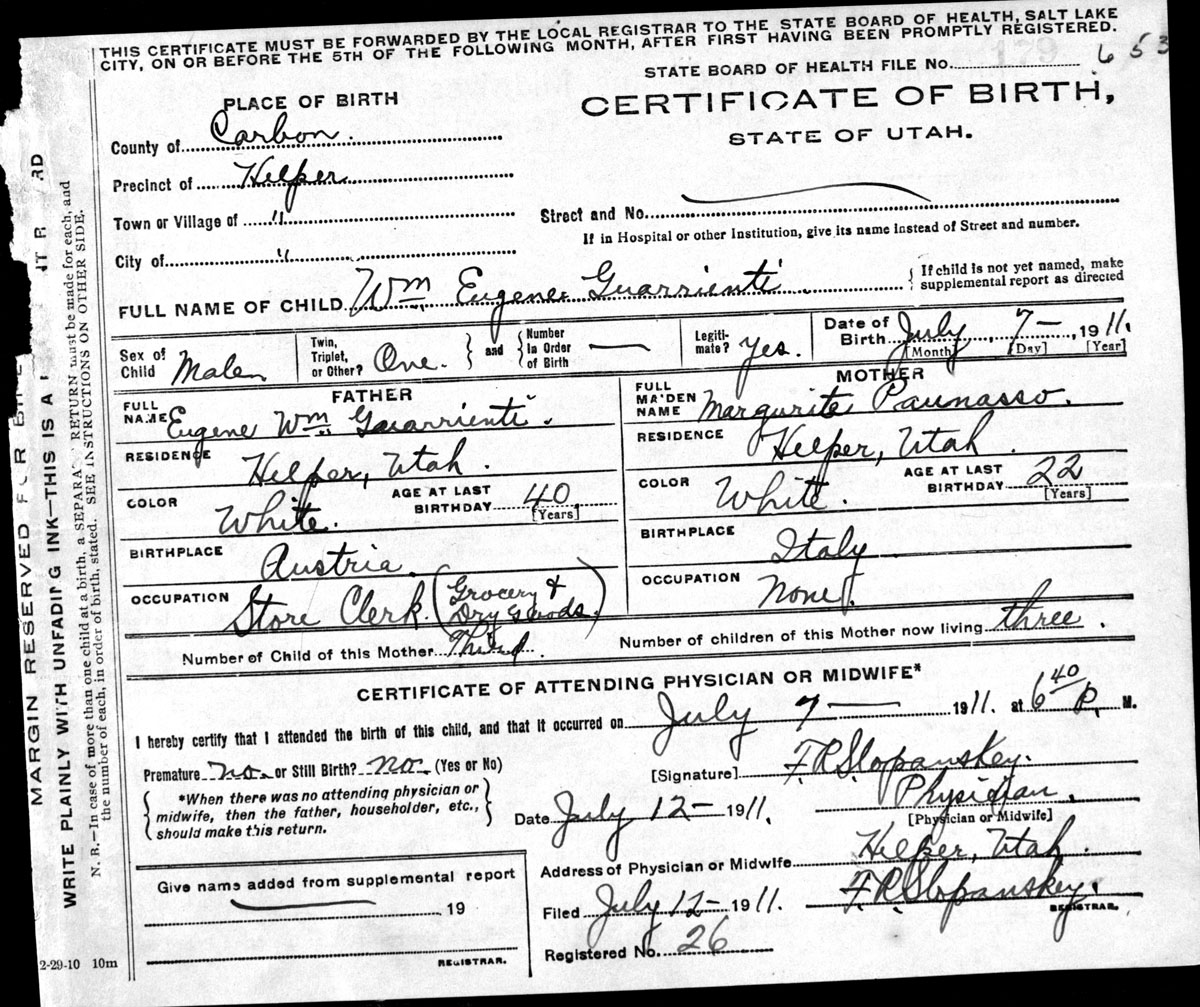 THIS CERTIFICATE MUST BE FORWARDED BY THE LOCAL REGISTRAR TO THE STATE BOARD OF HEALTH, SALT LAKE
CITY, ON OR BEFORE THE 5TH OF THE FOLLOWING MONTH, AFTER FIRST HAVING BEEN PROMPTLY REGISTERED.
STATE BOARD OF HEALTH FILE No. 179 653
PLACE OF BIRTH
CERTIFICATE OF BIRTH,
STATE OF UTAH.
County of Carbon.
Precinct of Helper
Town or Village of "
Street and No.
If in Hospital or other Institution, give its name instead of Street and number.
City of "
FULL NAME OF CHILD Wm Eugene Guarrienti
{ If child is not yet named, make
supplemental report as directed
Sex of Child Male
Twin, Triplet, or Other? One.
and
Number in Order of Birth —
Legiti-mate? Yes.
Date of Birth July 7 — , 1911.
[Month] [Day] [Year]
FATHER
FULL NAME Eugene Wm Guarrienti.
RESIDENCE Helper, Utah.
COLOR White.
AGE AT LAST BIRTHDAY 40
[Years]
BIRTHPLACE Austria
OCCUPATION Store Clerk. (Grocery & Dry Goods.)
MOTHER
FULL MAIDEN NAME Margurite Paunasso.
RESIDENCE Helper, Utah
COLOR White.
AGE AT LAST BIRTHDAY 22
[Years]
BIRTHPLACE Italy
OCCUPATION None.
Number of Child of this Mother Third.
Number of children of this Mother now living three.
CERTIFICATE OF ATTENDING PHYSICIAN OR MIDWIFE*
I hereby certify that I attended the birth of this child, and that it occurred on July 7 — 1911. at 6 40 P. M.
Premature no. or Still Birth? no. (Yes or No)
[Signature] F.R. Slopanskey.
*When there was no attending physician or
midwife, then the father, householder, etc.,
should make this return.
Date July 12 — 1911.
Physician.
[Physician or Midwife]
Address of Physician or Midwife Helper, Utah.
Give name added from supplemental report
19
REGISTRAR.
Filed July 12 — 1911.
F.R. Slopanskey.
REGISTRAR.
Registered No. 26
2-29-10 10m
MARGIN RESERVED FOR
WRITE PLAINLY WITH UNFADING INK—THIS IS A
N. B.—In case of more than one child at a birth, a RETURN must be made for each, and
the number of each, in order of birth, stated. SEE INSTRUCTIONS ON OTHER SIDE.